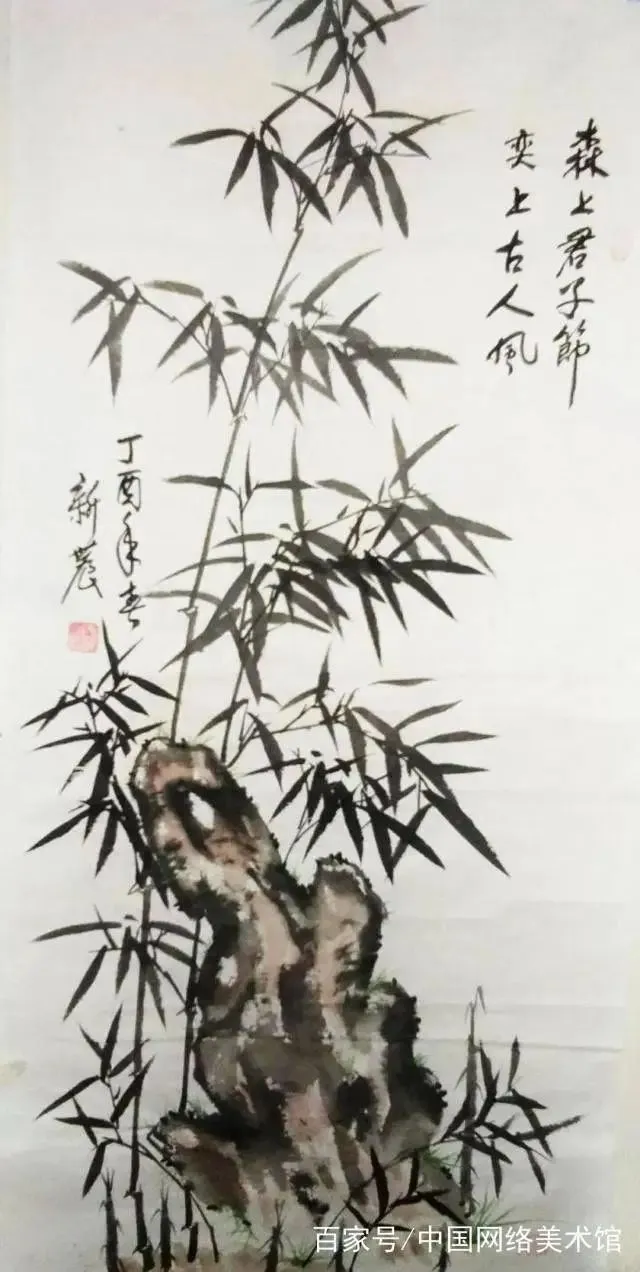 森上君子節
奕上古人風
丁酉年春
新農
百家号/中国网络美术馆